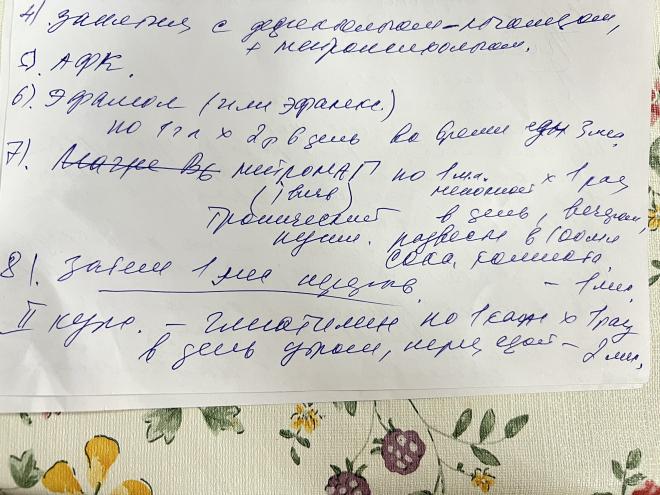 4). Занятия с дефектологом-логопедом,
+ нейропсихологом.
5). АФК.
6). Эфамол (или Эфалекс.)
по 1 гл х 2 р в день во время еды 3 мес.
7). Магне В6 нейроМАГ по 1 мл. х 1 раз
(1 в неполной
Тропический в день, вечером,
развести в 100 мл
сока, компота, - 1 мес.
8). Затем 1 мес перерыв.
II курс. - глиатилин по 1 капс х 1 раз
в день утром, перед едой - 2 мес.